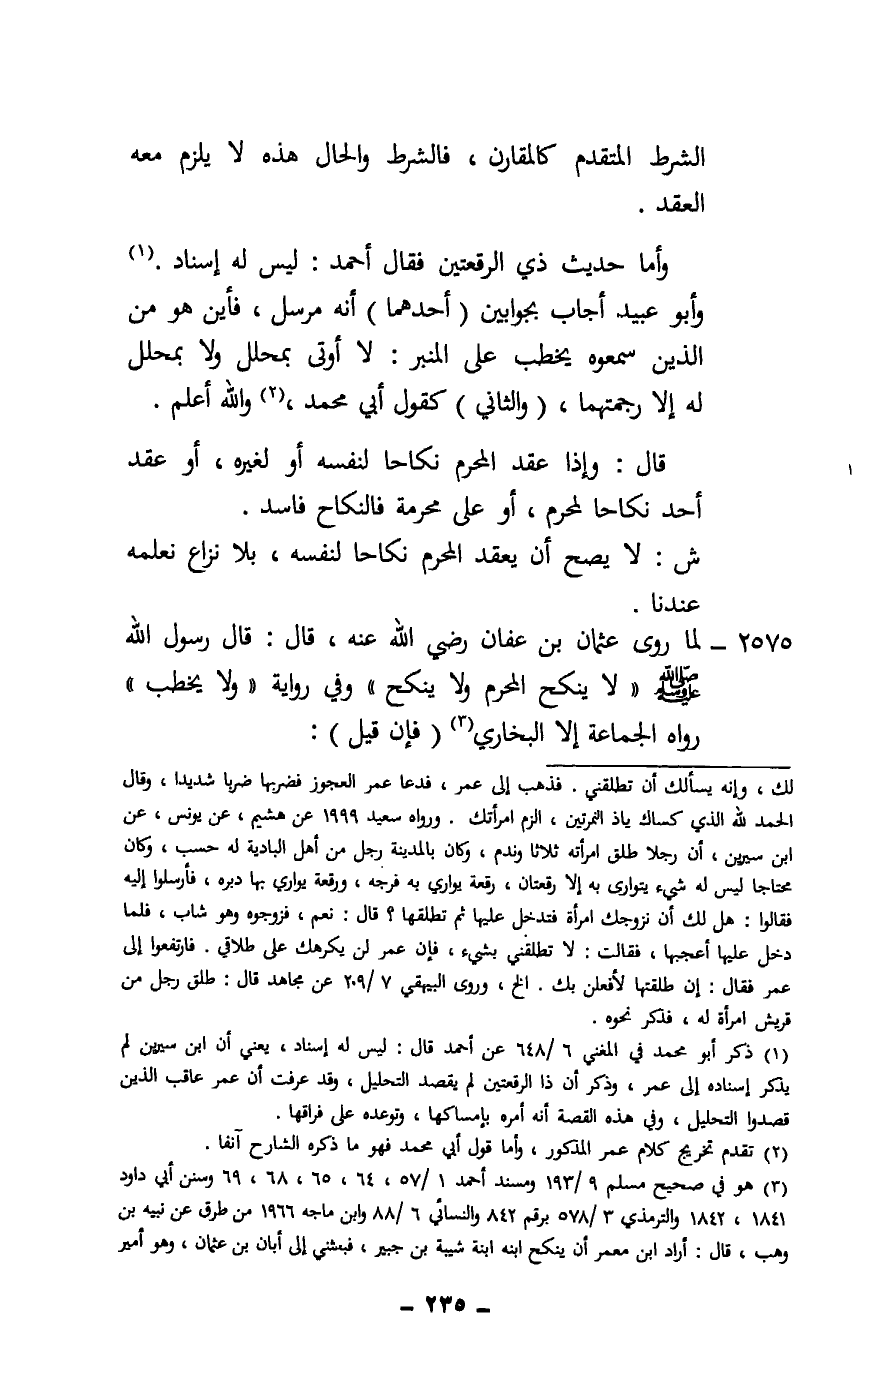 الشرط المتقدم كالمقارن ، فالشرط والحال هذه لا يلزم معه
العقد .
وأما حديث ذي الرقعتين فقال أحمد : ليس له إسناد .(١)
وأبو عبيد أجاب بجوابين ( أحدهما ) أنه مرسل ، فأين هو من
الذين سمعوه يخطب على المنبر : لا أوتى بمحلل ولا بمحلل
له إلا رجمتهما ، ( والثاني ) كقول أبي محمد ،(٢) والله أعلم .
قال : وإذا عقد المحرم نكاحا لنفسه أو لغيره ، أو عقد
أحد نكاحا لمحرم ، أو على محرمة فالنكاح فاسد .
ش : لا يصح أن يعقد المحرم نكاحا لنفسه ، بلا نزاع نعلمه
عندنا .
٢٥٧٥ ــ لما روى عثمان بن عفان رضي الله عنه ، قال : قال رسول الله
ﷺ « لا ينكح المحرم ولا ينكح » وفي رواية « ولا يخطب »
رواه الجماعة إلا البخاري(٣) ( فإن قيل ) :
لك ، وإنه يسألك أن تطلقني . فذهب إلى عمر ، فدعا عمر العجوز فضربها ضربا شديدا ، وقال
الحمد لله الذي كساك ياذ النمرتين ، الزم امرأتك . ورواه سعيد ١٩٩٩ عن هشيم ، عن يونس ، عن
ابن سيرين ، أن رجلا طلق امرأته ثلاثا وندم ، وكان بالمدينة رجل من أهل البادية له حسب ، وكان
محتاجا ليس له شيء يتوارى به إلا رقعتان ، رقعة يواري به فرجه ، ورقعة يواري بها دبره ، فأرسلوا إليه
فقالوا : هل لك أن نزوجك امرأة فتدخل عليها ثم تطلقها ؟ قال : نعم ، فزوجوه وهو شاب ، فلما
دخل عليها أعجبها ، فقالت : لا تطلقني بشيء ، فإن عمر لن يكرهك على طلاقي . فارتفعوا إلى
عمر فقال : إن طلقتها لأفعلن بك . الخ ، وروى البيهقي ٧ /٢٠٩ عن مجاهد قال : طلق رجل من
قريش امرأة له ، فذكر نحوه .
(١) ذكر أبو محمد في المغني ٦ /٦٤٨ عن أحمد قال : ليس له إسناد ، يعني أن ابن سيرين لم
يذكر إسناده إلى عمر ، وذكر أن ذا الرقعتين لم يقصد التحليل ، وقد عرفت أن عمر عاقب الذين
قصدوا التحليل ، وفي هذه القصة أنه أمره بإمساكها ، وتوعده على فراقها .
(٢) تقدم تخريج كلام عمر المذكور ، وأما قول أبي محمد فهو ما ذكره الشارح آنفا .
(٣) هو في صحيح مسلم ٩ /١٩٣ ومسند أحمد ١ /٥٧ ، ٦٤ ، ٦٥ ، ٦٨ ، ٦٩ وسنن أبي داود
١٨٤١ ، ١٨٤٢ والترمذي ٣ /٥٧٨ برقم ٨٤٢ والنسائي ٦ /٨٨ وابن ماجه ١٩٦٦ من طرق عن نبيه بن
وهب ، قال : أراد ابن معمر أن ينكح ابنه ابنة شيبة بن جبير ، فبعثني إلى أبان بن عثمان ، وهو أمير
ــ ٢٣٥ ــ